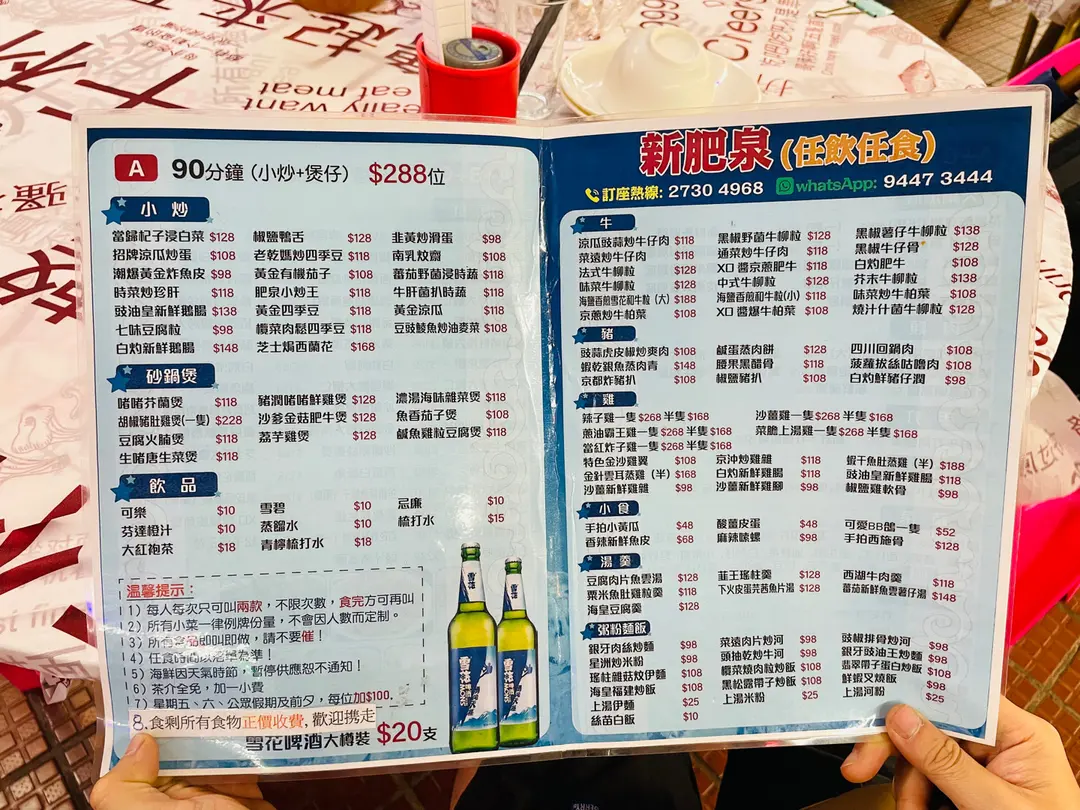 really want
eat meat
Cheers
A 90分鐘 (小炒+煲仔) $288位
小炒
當歸杞子浸白菜 $128 椒鹽鴨舌 $128 韭黃炒滑蛋 $98
招牌涼瓜炒蛋 $108 老乾媽炒四季豆 $118 南乳炆齋 $108
潮爆黃金炸魚皮 $98 黃金有機茄子 $108 蕃茄野菌浸時蔬 $118
時菜炒珍肝 $118 肥泉小炒王 $118 牛肝菌扒時蔬 $118
豉油皇新鮮鵝腸 $138 黃金四季豆 $118 黃金涼瓜 $118
七味豆腐粒 $98 欖菜肉鬆四季豆 $118 豆豉鯪魚炒油麥菜 $108
白灼新鮮鵝腸 $148 芝士焗西蘭花 $168
砂鍋煲
啫啫芥蘭煲 $118 豬潤啫啫鮮雞煲 $128 濃湯海味雜菜煲 $118
胡椒豬肚雞煲(一隻) $228 沙爹金菇肥牛煲 $128 魚香茄子煲 $108
豆腐火腩煲 $118 荔芋雞煲 $128 鹹魚雞粒豆腐煲 $118
生啫唐生菜煲 $118
飲品
可樂 $10 雪碧 $10 忌廉 $10
芬達橙汁 $10 蒸餾水 $10 梳打水 $15
大紅袍茶 $18 青檸梳打水 $18
溫馨提示：
1）每人每次只可叫兩款，不限次數，食完方可再叫
2）所有小菜一律例牌份量，不會因人數而定制。
3）所有食品即叫即做，請不要催！
4）任食時間以落單為準！
5）海鮮因天氣時節，暫停供應恕不通知！
6）茶介全免，加一小費
7）星期五、六、公眾假期及前夕，每位加$100.
8.食剩所有食物正價收費,歡迎携走
雪花啤酒大樽裝 $20支
新肥泉 (任飲任食)
訂座熱線: 2730 4968 whatsApp: 9447 3444
牛
涼瓜豉蒜炒牛仔肉 $118 黑椒野菌牛柳粒 $128 黑椒薯仔牛柳粒 $138
菜遠炒牛仔肉 $118 通菜炒牛仔肉 $118 黑椒牛仔骨 $128
法式牛柳粒 $128 XO醬京蔥肥牛 $118 白灼肥牛 $108
味菜牛柳粒 $128 中式牛柳粒 $128 芥末牛柳粒 $138
海鹽香煎雪花和牛粒 (大) $188 海鹽香煎和牛粒(小) $118 味菜炒牛柏葉 $108
京蔥炒牛柏葉 $108 XO醬爆牛柏葉 $108 燒汁什菌牛柳粒 $128
豬
豉蒜虎皮椒炒爽肉 $108 鹹蛋蒸肉餅 $128 四川回鍋肉 $108
蝦乾銀魚蒸肉青 $148 腰果黑醋骨 $118 菠蘿拔絲咕嚕肉 $108
京都炸豬扒 $108 椒鹽豬扒 $108 白灼鮮豬仔潤 $98
雞
辣子雞一隻$268 半隻$168 沙薑雞一隻$268 半隻$168
蔥油霸王雞一隻$268 半隻$168 菜膽上湯雞一隻$268 半隻$168
當紅炸子雞一隻$268 半隻$168
特色金沙雞翼 $108 京沖炒雞雜 $118 蝦干魚肚蒸雞（半）$188
金針雲耳蒸雞（半）$168 白灼新鮮雞腸 $118 豉油皇新鮮雞腸 $118
沙薑新鮮雞雜 $98 沙薑新鮮雞腳 $98 椒鹽雞軟骨 $98
小食
手拍小黃瓜 $48 酸薑皮蛋 $48 可愛BB鴿一隻 $52
香辣新鮮魚皮 $68 麻辣螺 $98 手拍西施骨 $128
湯羹
豆腐肉片魚雲湯 $128 韮王瑤柱羹 $128 西湖牛肉羹 $118
粟米魚肚雞粒羹 $118 下火皮蛋芫茜魚片湯 $128 蕃茄新鮮魚雲薯仔湯 $148
海皇豆腐羹 $128
粥粉麵飯
銀牙肉絲炒麵 $98 菜遠肉片炒河 $98 豉椒排骨炒河 $98
星洲炒米粉 $98 頭抽乾炒牛河 $98 銀牙豉油王炒麵 $98
瑤柱雜菇炆伊麵 $108 欖菜燒肉粒炒飯 $108 翡翠帶子蛋白炒飯 $108
海皇福建炒飯 $108 黑松露帶子炒飯 $108 鮮蝦叉燒飯 $98
上湯伊麵 $25 上湯米粉 $25 上湯河粉 $25
絲苗白飯 $10